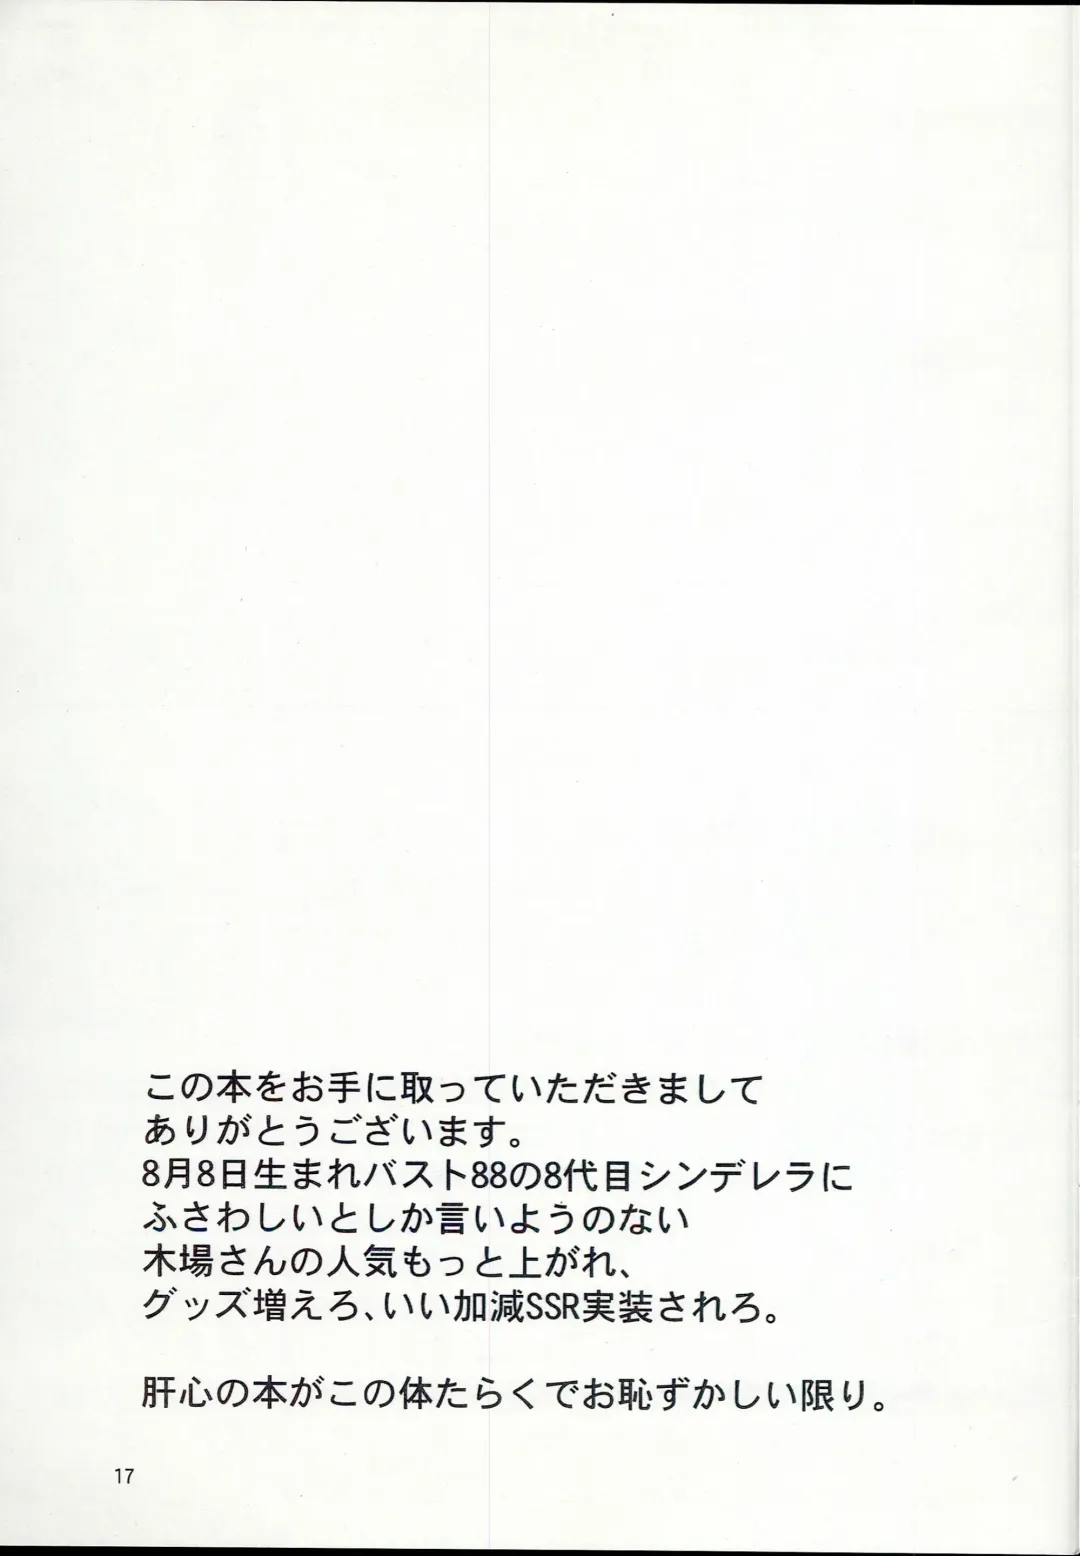 この本をお手に取っていただきまして
ありがとうございます。
8月8日生まれバスト88の8代目シンデレラに
ふさわしいとしか言いようのない
木場さんの人気もっと上がれ、
グッズ増えろ、いい加減SSR実装されろ。
肝心の本がこの体たらくでお恥ずかしい限り。
17